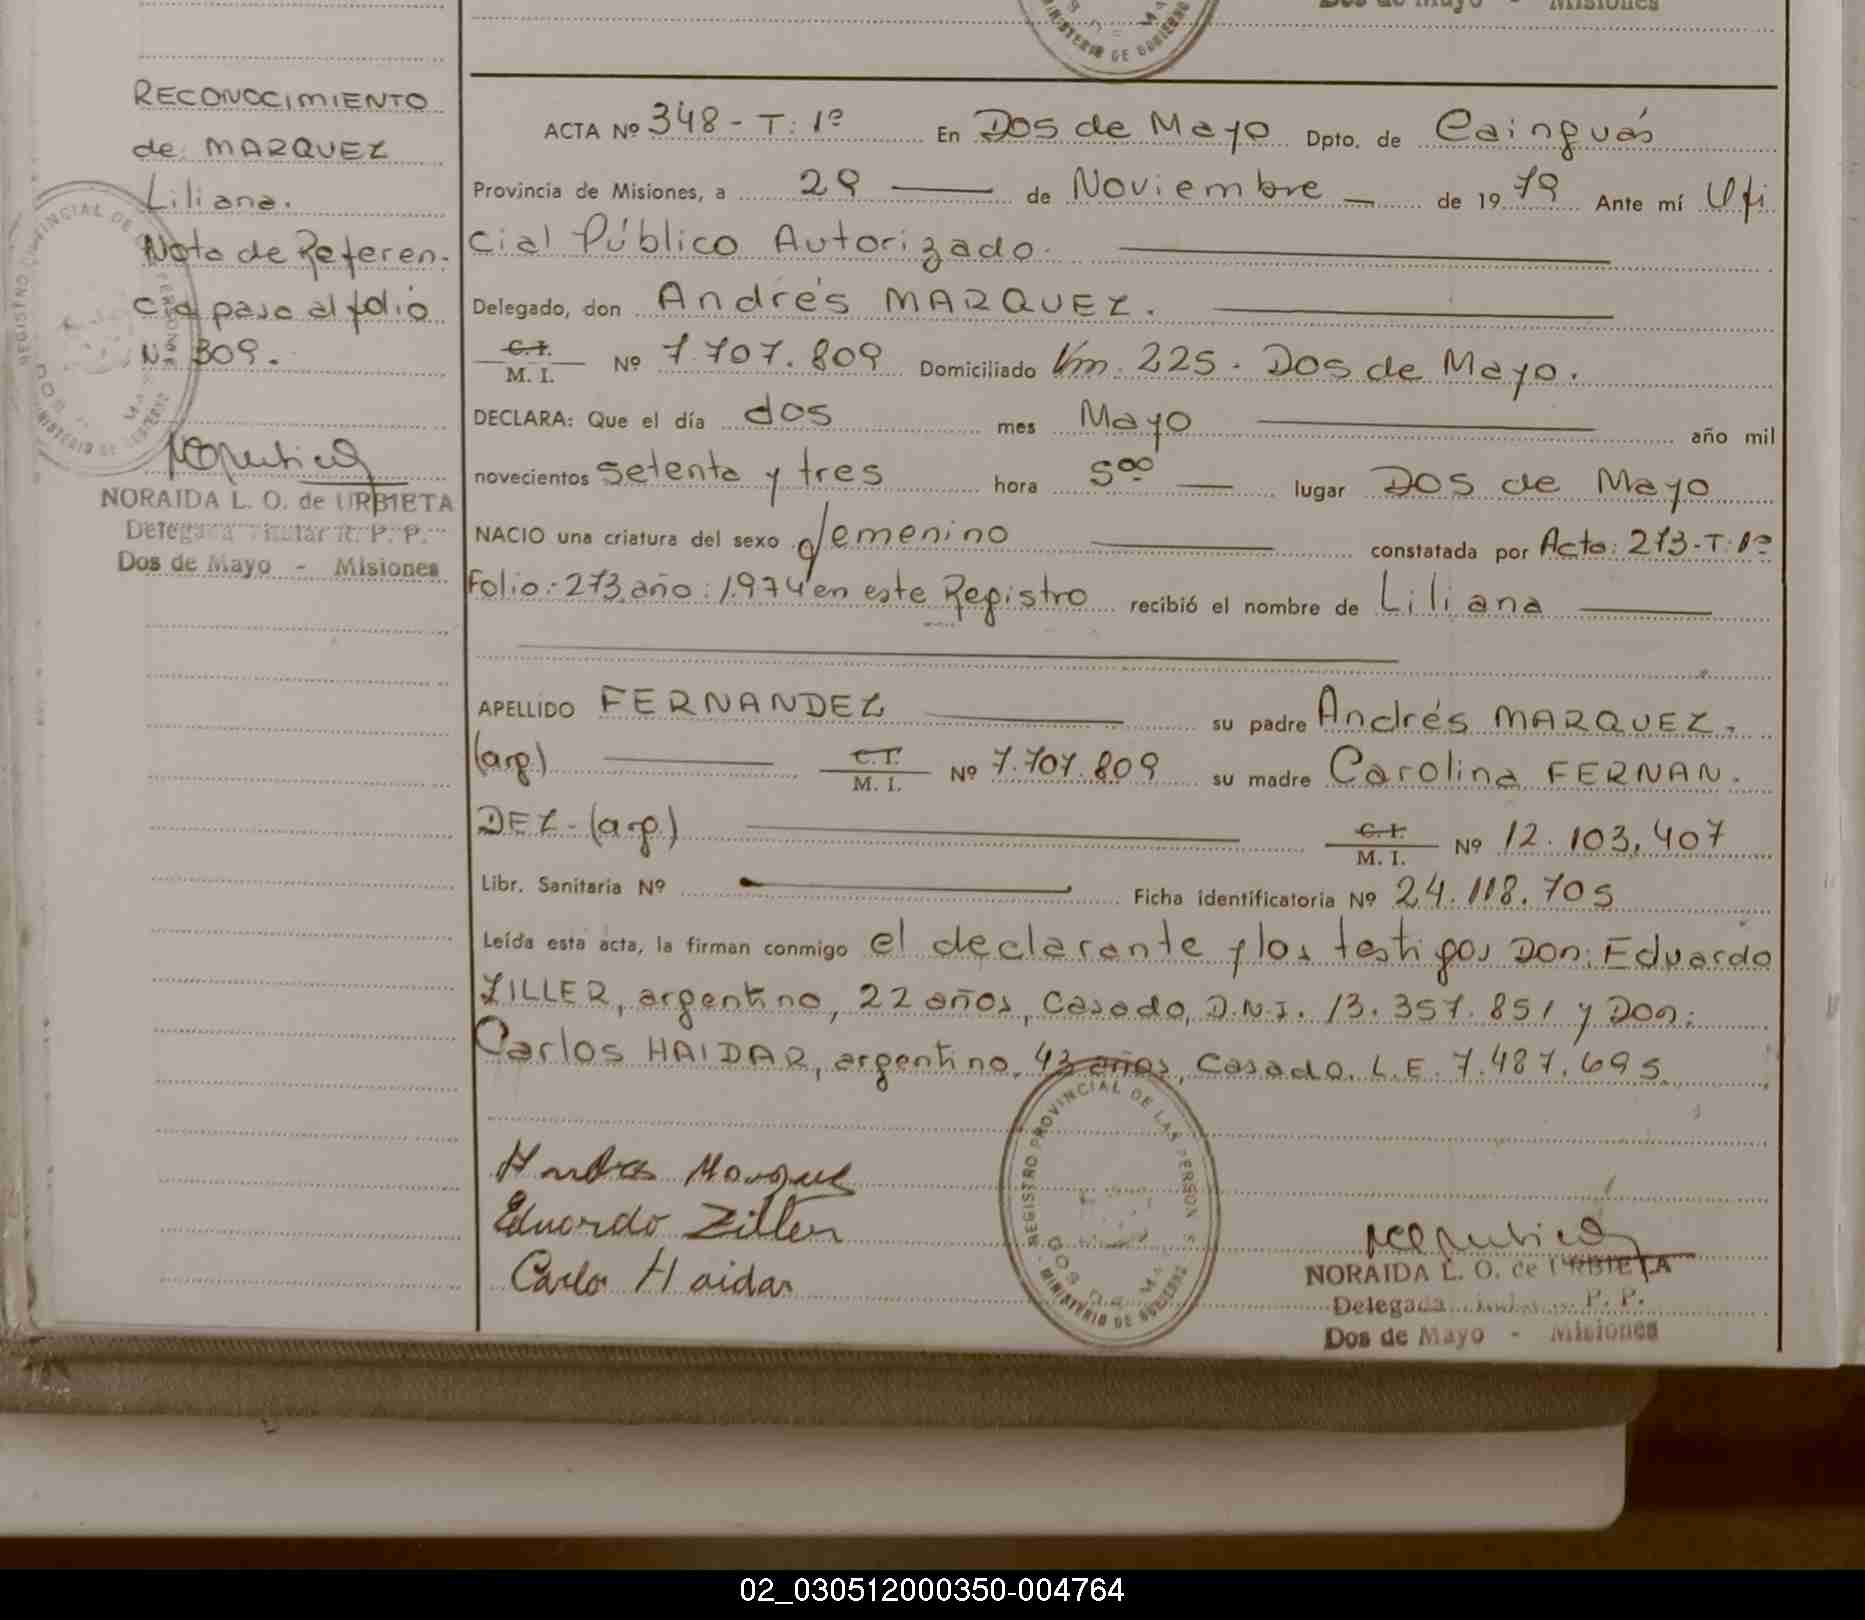 Dos de Mayo - Misiones
MINISTERIO DE GOBIERNO
RECONOCIMIENTO
de MARQUEZ
Liliana.
Nota de Referen-
cia pasa al folio
Nº 309.
NORAIDA L. O. de URBIETA
Delegada Titular R. P. P.
Dos de Mayo - Misiones
ACTA Nº 348 - T: 1º En Dos de Mayo Dpto. de Cainguás
Provincia de Misiones, a 29 de Noviembre de 1979 Ante mí Ofi
cial Público Autorizado.
Delegado, don Andrés MARQUEZ.
C. I. M. I. Nº 7.707.809 Domiciliado Km. 225 - Dos de Mayo.
DECLARA: Que el día dos mes Mayo año mil
novecientos setenta y tres hora 5⁰⁰ lugar Dos de Mayo
NACIO una criatura del sexo femenino constatada por Acta: 273-T:1º
Folio: 273 año: 1974 en este Registro recibió el nombre de Liliana
APELLIDO FERNANDEZ su padre Andrés MARQUEZ.
(arg) C. I. M. I. Nº 7.707.809 su madre Carolina FERNAN-
DEZ - (arg) C. I. M. I. Nº 12.103.407
Libr. Sanitaria Nº Ficha identificatoria Nº 24.118.705
Leída esta acta, la firman conmigo el declarante y los testigos Don: Eduardo
ZILLER, argentino, 22 años, Casado, D.N.I. 13.357.851 y Don:
Carlos HAIDAR, argentino, 43 años, Casado. L.E. 7.487.695
Andres Marquez
Eduardo Ziller
Carlo Haidar
REGISTRO PROVINCIAL DE LAS PERSONAS
MINISTERIO DE GOBIERNO
NORAIDA L. O. de URBIETA
Delegada P. P.
Dos de Mayo - Misiones
02_030512000350-004764